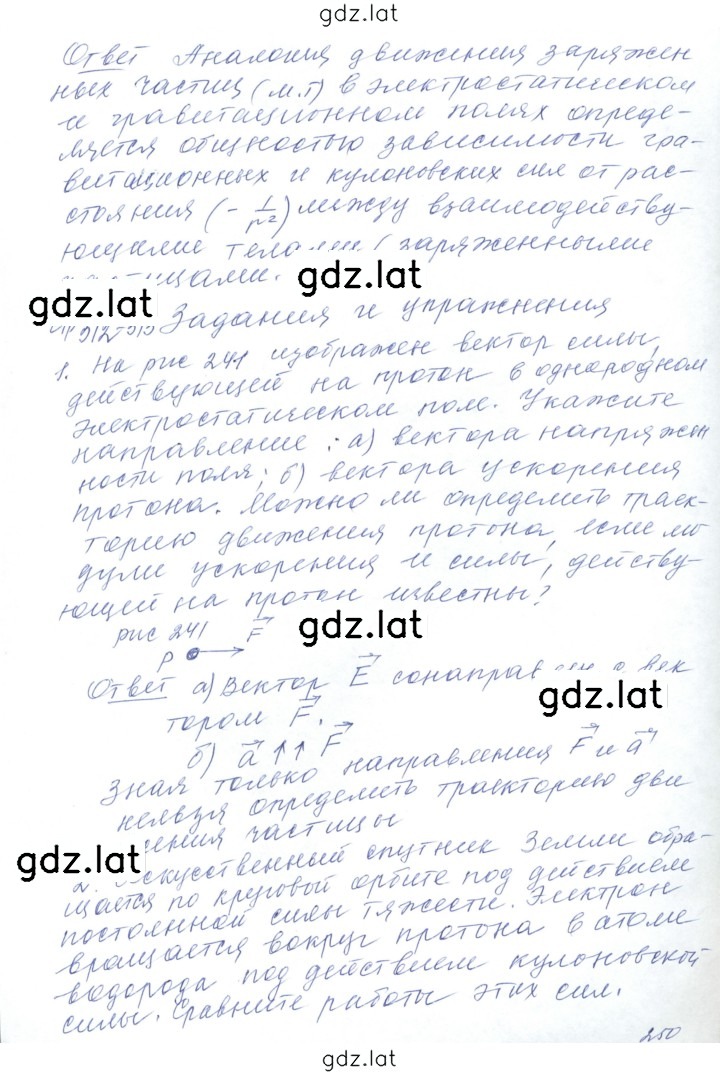 gdz.lat
Ответ Аналогия движения заряжен
ных частиц (м.т) в электростатическом
и гравитационном полях опреде-
ляется общностью зависимости гра-
витационных и кулоновских сил от рас-
стояния (- 1/r²) между взаимодейству-
ющими (заряженными
gdz.lat
gdz.lat
Задания и упражнения
1. На рис 241 изображен вектор силы,
действующей на протон в однородном
электростатическом поле. Укажите
направление: а) вектора напряжен
ности поля; б) вектора ускорения
протона. Можно ли определить траек-
торию движения протона, если мо
дули ускорения и силы, действу-
ющей на протон известны?
рис 241 F⃗
gdz.lat
p
Ответ а) Вектор E⃗ с век
gdz.lat
тором F⃗.
б) a⃗ ↑↑ F⃗
Зная только направления F⃗ и a⃗
нельзя определить траекторию дви
жения частицы
gdz.lat
2. Искусственный спутник Земли обра-
щается по круговой орбите под действием
постоянной силы тяжести. Электрон
вращается вокруг протона в атоме
водорода под действием кулоновской
силы. Сравните работы этих сил.
250
gdz.lat